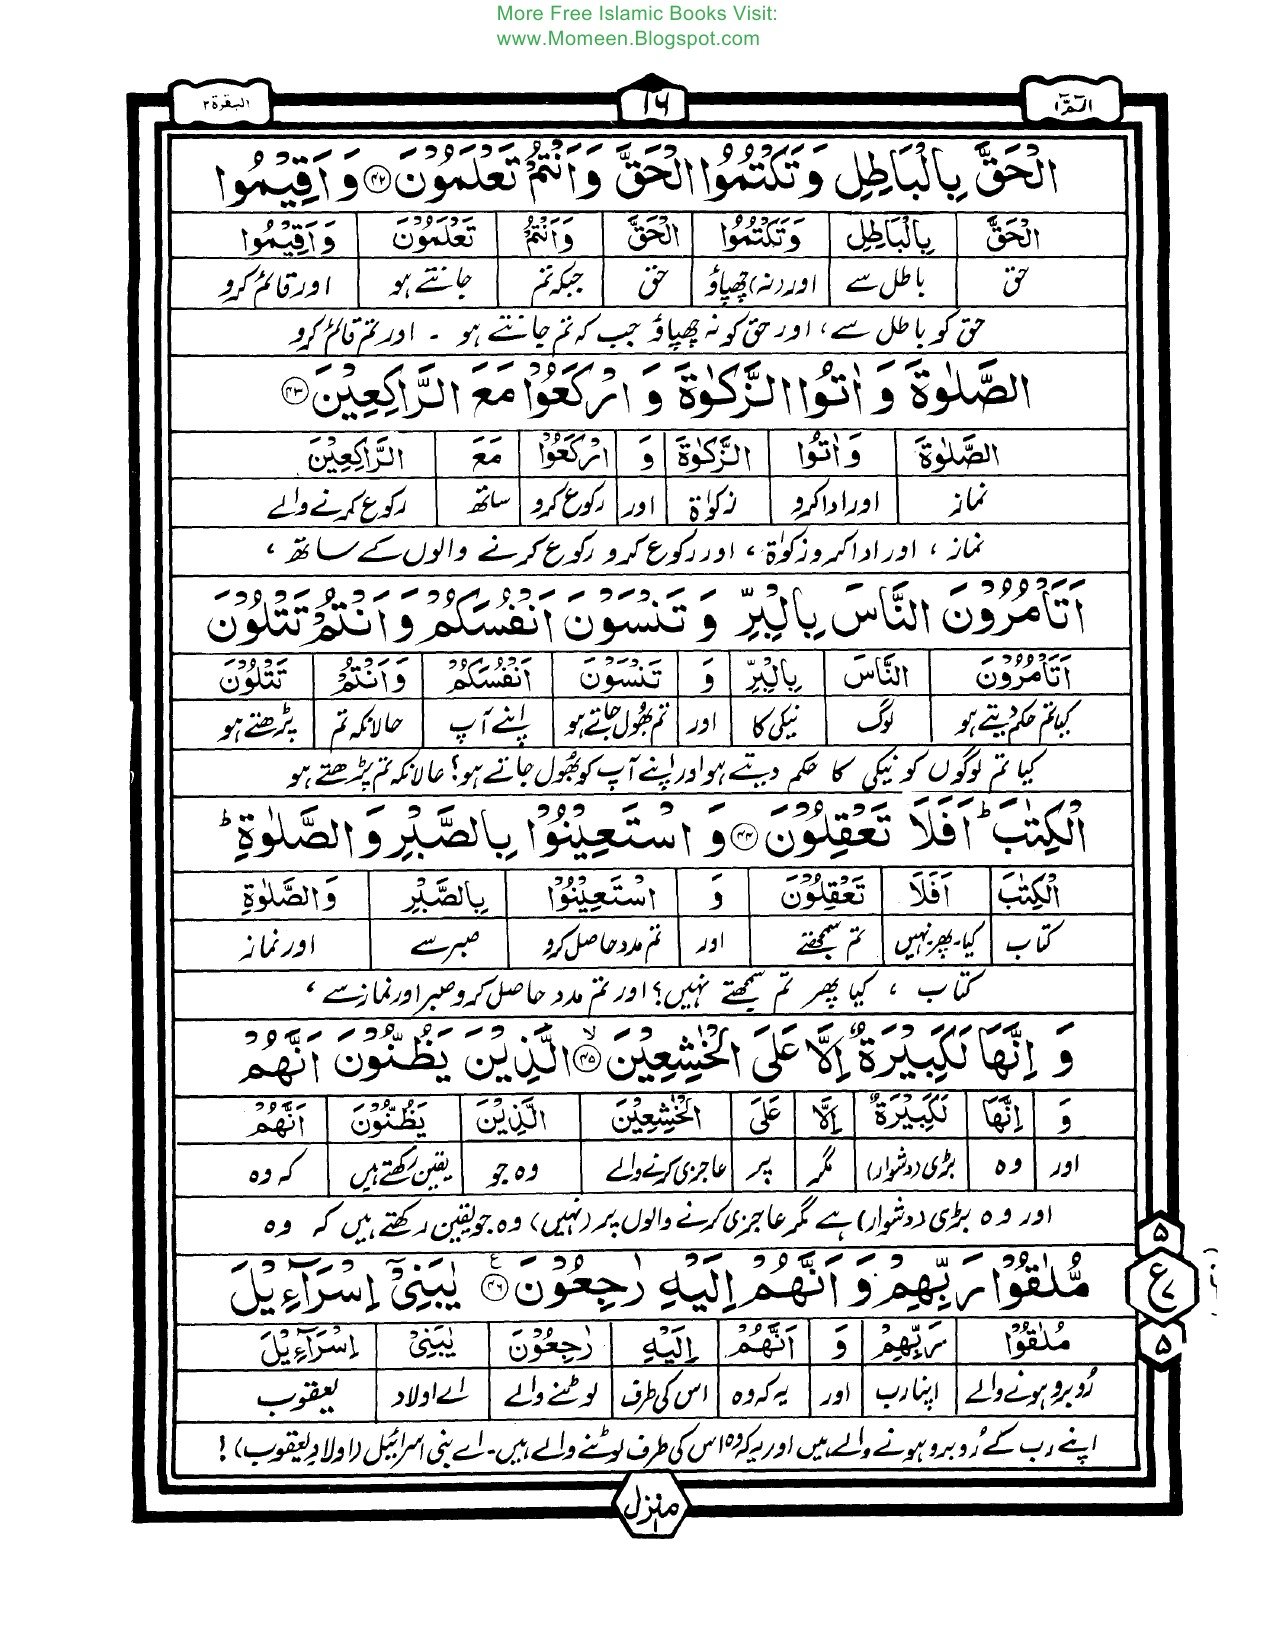 More Free Islamic Books Visit:
www.Momeen.Blogspot.com
الٓمّٓ ١ ١٦ البقرة ٢
الْحَقَّ بِالْبَاطِلِ وَتَكْتُمُوا الْحَقَّ وَاَنْتُمْ تَعْلَمُوْنَ ﴿۴۲﴾ وَاَقِيْمُوا
الْحَقَّ بِالْبَاطِلِ وَتَكْتُمُوا الْحَقَّ وَاَنْتُمْ تَعْلَمُوْنَ وَاَقِيْمُوا
حق باطل سے اور (نہ) چھپاؤ حق جبکہ تم جانتے ہو اور قائم کرو
حق کو باطل سے، اور حق کو نہ چھپاؤ جب کہ تم جانتے ہو ۔ اور تم قائم کرو
الصَّلٰوةَ وَاٰتُوا الزَّكٰوةَ وَارْكَعُوْا مَعَ الرَّاكِعِيْنَ ﴿۴۳﴾
الصَّلٰوةَ وَاٰتُوا الزَّكٰوةَ وَ ارْكَعُوْا مَعَ الرَّاكِعِيْنَ
نماز اور ادا کرو زکوٰۃ اور رکوع کرو ساتھ رکوع کرنے والے
نماز، اور ادا کرو زکوٰۃ، اور رکوع کرو رکوع کرنے والوں کے ساتھ،
اَتَاْمُرُوْنَ النَّاسَ بِالْبِرِّ وَتَنْسَوْنَ اَنْفُسَكُمْ وَاَنْتُمْ تَتْلُوْنَ
اَتَاْمُرُوْنَ النَّاسَ بِالْبِرِّ وَ تَنْسَوْنَ اَنْفُسَكُمْ وَاَنْتُمْ تَتْلُوْنَ
کیا تم حکم دیتے ہو لوگ نیکی کا اور تم بھول جاتے ہو اپنے آپ حالانکہ تم پڑھتے ہو
کیا تم لوگوں کو نیکی کا حکم دیتے ہو اور اپنے آپ کو بھول جاتے ہو؟ حالانکہ تم پڑھتے ہو
الْكِتٰبَ ؕ اَفَلَا تَعْقِلُوْنَ ﴿۴۴﴾ وَاسْتَعِيْنُوْا بِالصَّبْرِ وَالصَّلٰوةِ ؕ
الْكِتٰبَ اَفَلَا تَعْقِلُوْنَ وَ اسْتَعِيْنُوْا بِالصَّبْرِ وَالصَّلٰوةِ
کتاب کیا۔پھر۔نہیں تم سمجھتے اور تم مدد حاصل کرو صبر سے اور نماز
کتاب، کیا پھر تم سمجھتے نہیں؟ اور تم مدد حاصل کرو صبر اور نماز سے،
وَاِنَّهَا لَكَبِيْرَةٌ اِلَّا عَلَى الْخٰشِعِيْنَ ﴿۴۵﴾ ۙ الَّذِيْنَ يَظُنُّوْنَ اَنَّهُمْ
وَ اِنَّهَا لَكَبِيْرَةٌ اِلَّا عَلَى الْخٰشِعِيْنَ الَّذِيْنَ يَظُنُّوْنَ اَنَّهُمْ
اور وہ بڑی (دشوار) مگر پر عاجزی کرنے والے وہ جو یقین رکھتے ہیں کہ وہ
اور وہ بڑی (دشوار) ہے مگر عاجزی کرنے والوں پر (نہیں) وہ جو یقین رکھتے ہیں کہ وہ
مُّلٰقُوْا رَبِّهِمْ وَاَنَّهُمْ اِلَيْهِ رٰجِعُوْنَ ﴿۴۶﴾ ع يٰبَنِيْٓ اِسْرَآءِيْلَ
مُلٰقُوْا رَبِّهِمْ وَ اَنَّهُمْ اِلَيْهِ رٰجِعُوْنَ يٰبَنِيْٓ اِسْرَآءِيْلَ
رُوبرو ہونے والے اپنا رب اور یہ کہ وہ اس کی طرف لوٹنے والے اے اولاد یعقوب
اپنے رب کے رُوبرو ہونے والے ہیں اور یہ کہ وہ اس کی طرف لوٹنے والے ہیں۔ اے بنی اسرائیل (اولادِ یعقوب)!
۵
ع ٧
۵
منزل ١